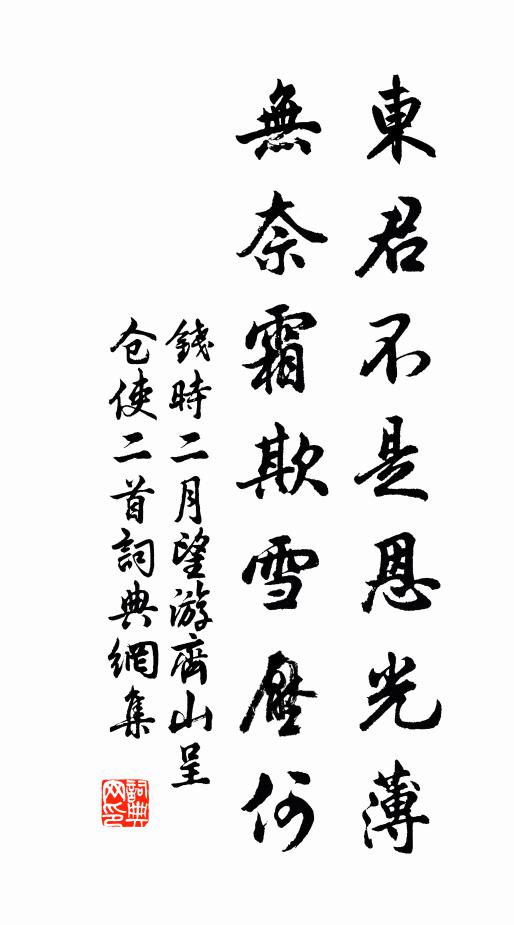 東君不是恩光薄
無奈霜欺雪壓何
錢時二月望游齊山呈
仓使二首詞典網集
詞典
网印